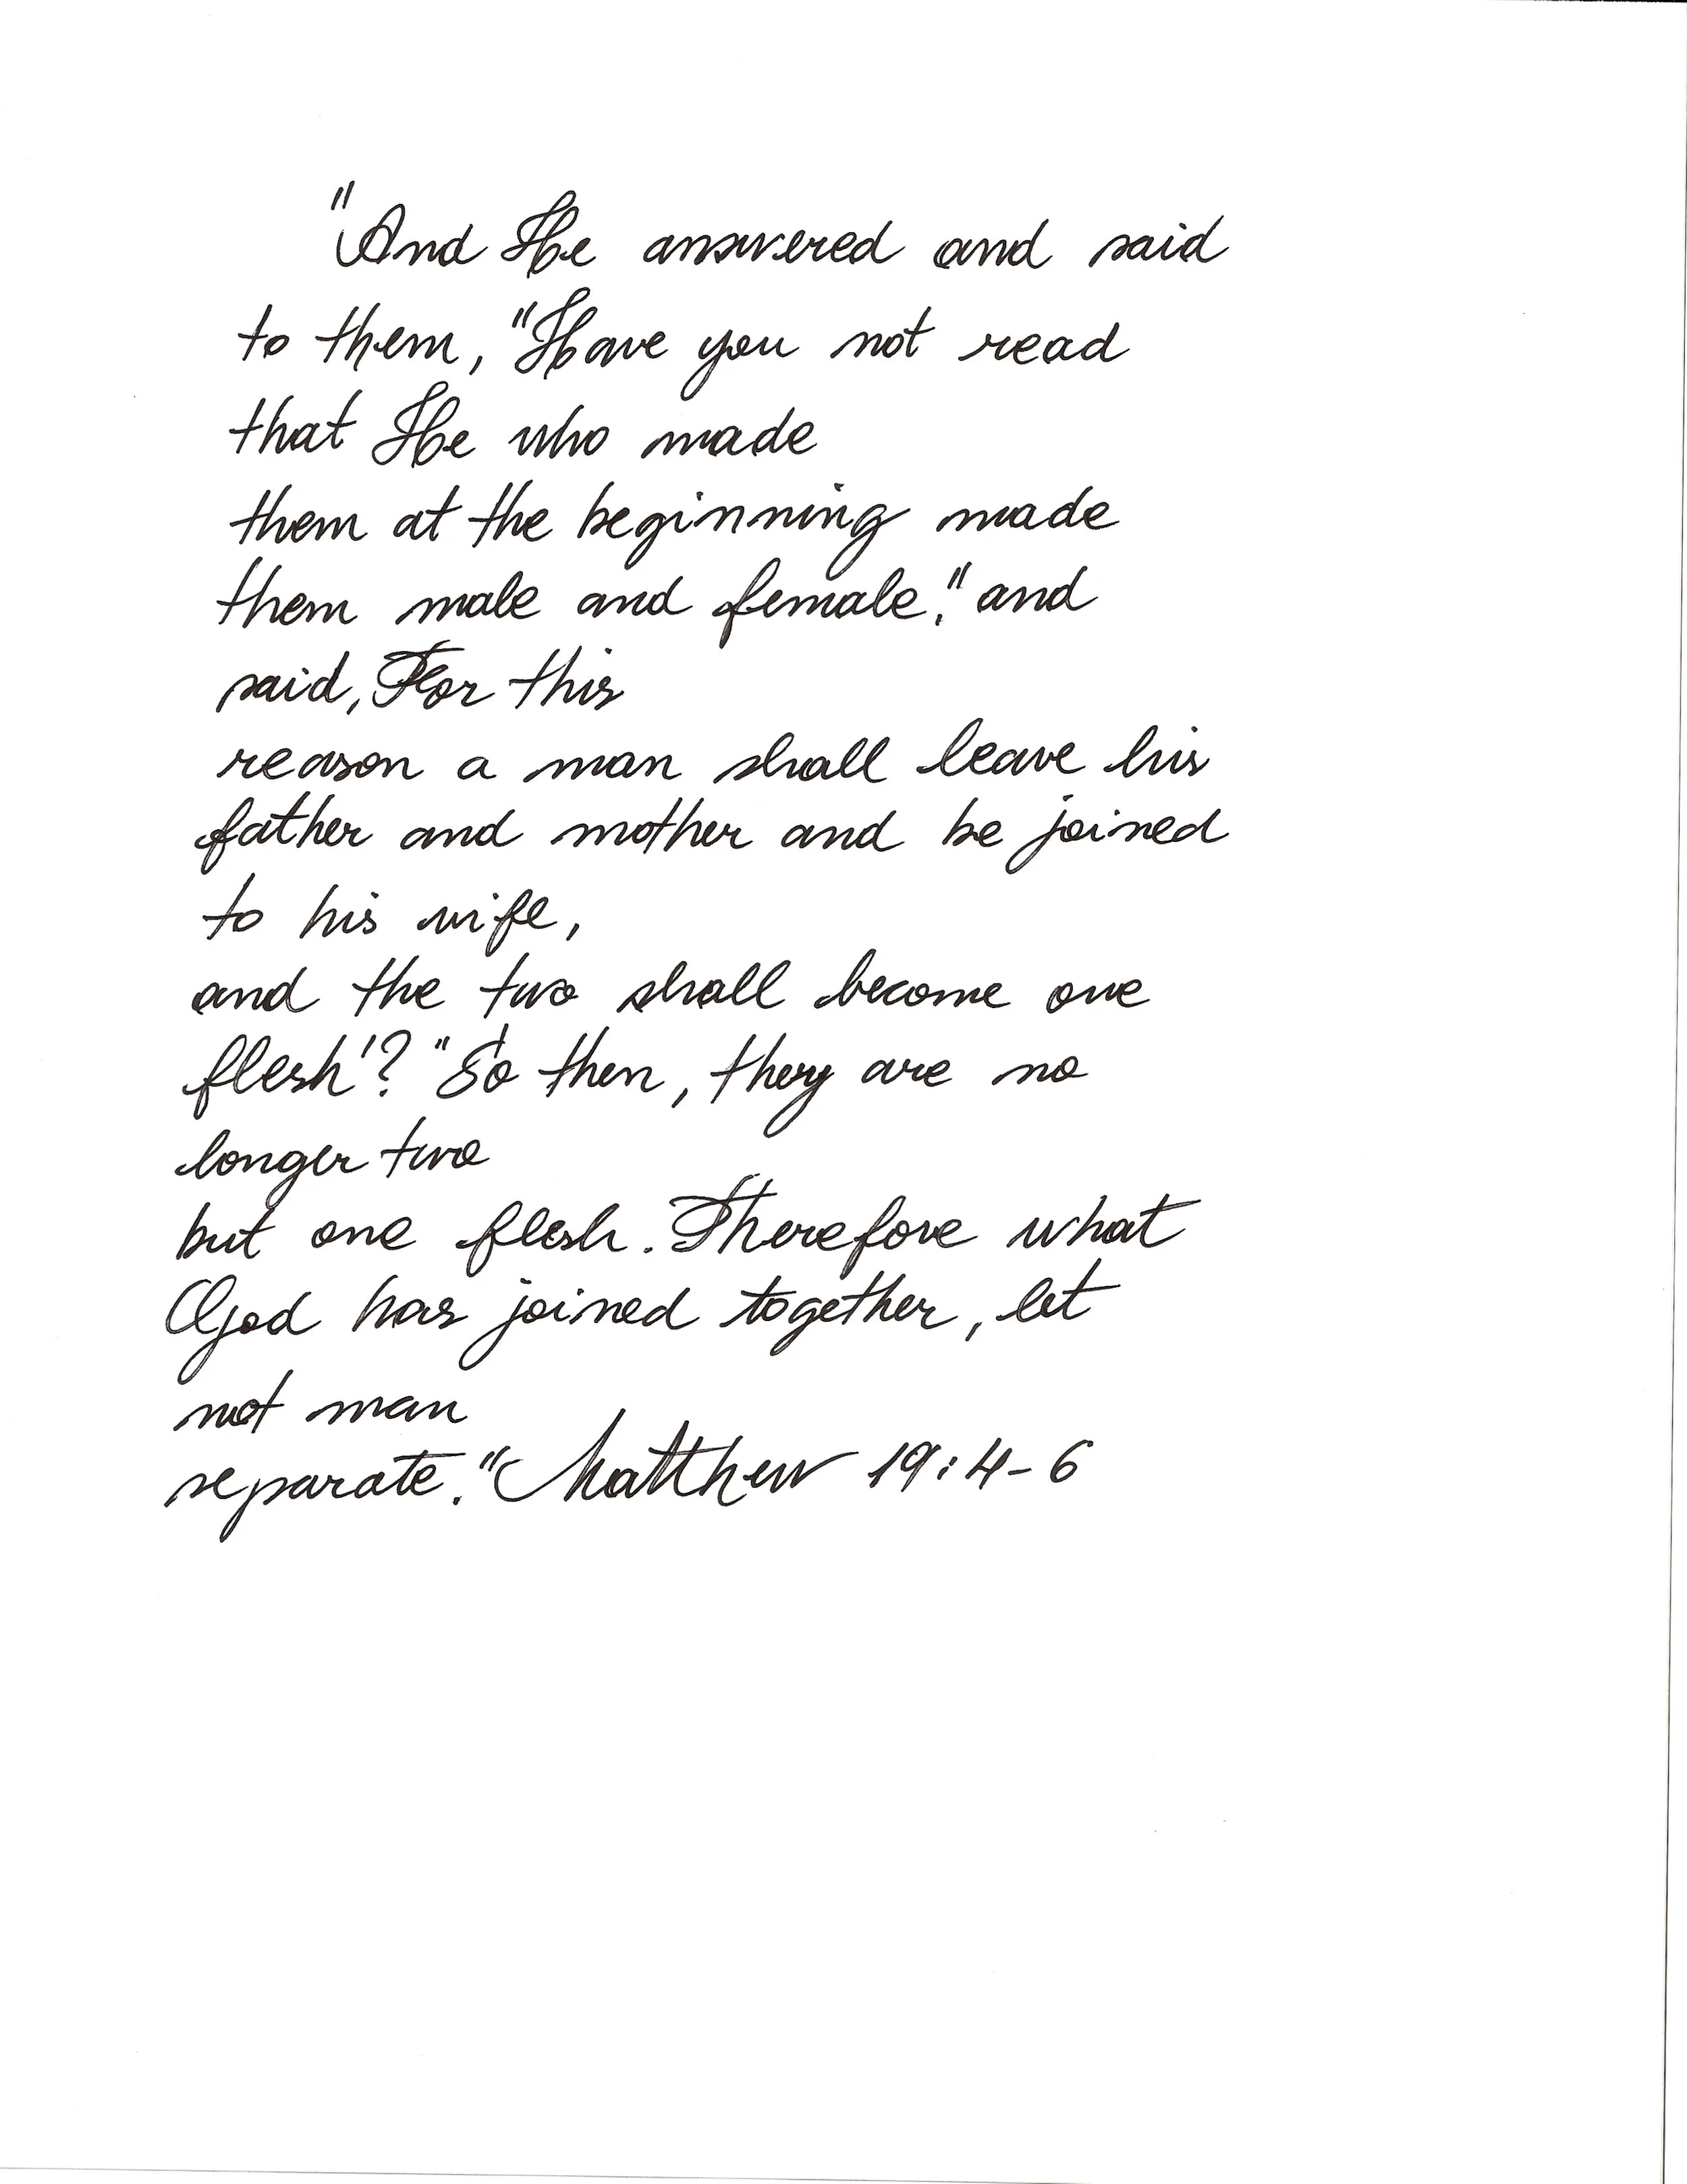 "And He answered and said
to them, "Have you not read
that He who made
them at the beginning made
them male and female," and
said, For this
reason a man shall leave his
father and mother and be joined
to his wife,
and the two shall become one
flesh'? "So then, they are no
longer two
but one flesh. Therefore what
God has joined together, let
not man
separate." Matthew 19:4-6